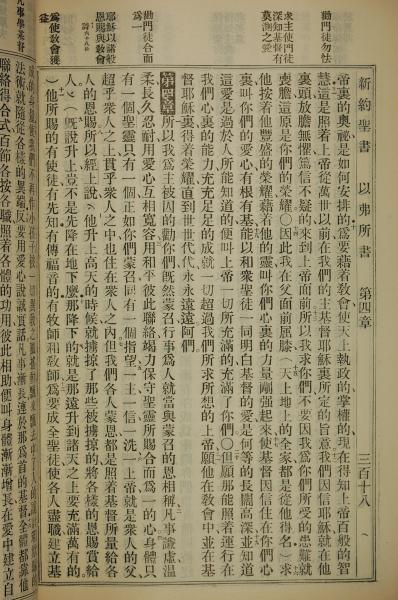 新約聖書　以弗所書　第四章　三百十八
勸門徒勿怯
求主使門徒
深知基督有
莫測之愛
勸門徒合而
爲一
耶穌以諸般
恩賜與教會
詩六十八篇
爲使教會獲
益
帝裏的奧祕是如何安排的爲要藉着教會使天上執政的掌權的現在得知上帝百般的智
慧這是照着上帝從萬世以前在我們的主基督耶穌裏所定的旨意我們因信耶穌就在他
裏頭放膽無懼篤信不疑的來到上帝面前所以我求你們不要因我爲你們所受的患難就
喪膽這原是你們的榮耀〇因此我在父面前屈膝（天上地上的全家都是從他得名）求
他按着他豐盛的榮耀藉着他的靈叫你們心裏的力量剛强起來使基督因信住在你們心
裏叫你們的愛心有根有基能以和衆聖徒一同明白基督的愛是何等的長闊高深並知道
這愛是過於人所能知道的便叫上帝一切所充滿的充滿了你們〇但願那能照着運行在
我們心裏的能力充充足足的成就一切超過我們所求所想的上帝願他在教會中並在基
督耶穌裏得着榮耀直到世世代代永永遠遠阿們
第四章所以我爲主被囚的勸你們旣然蒙召行事爲人就當與蒙召的恩相稱凡事謙虛溫
柔長久忍耐用愛心互相寬容用和平彼此聯絡竭力保守聖靈所賜合而爲一的心身體只
有一個聖靈只有一個正如你們蒙召同有一個指望一主一信一洗一上帝就是衆人的父
超乎衆人之上貫乎衆人之中也住在衆人之內但我們各人蒙恩都是照着基督所量給各
人的恩賜所以經上說（他升上高天的時候就擄掠了那些被擄掠的將各樣的恩賜賞給
人）（旣說升上豈不是先降在地下麽那降下的就是那遠升到諸天之上要充滿萬有的
）他所賜的有使徒有先知有傳福音的有牧師和教師爲要成全聖徒使各人盡職建立基
法術就隨從各樣的異端反要用愛心說誠實話凡事漸長連於那爲首的基督全體都靠他
聯絡得合式百節各按各職照着各體的功用彼此相助便叫身體漸漸增長在愛中建立自